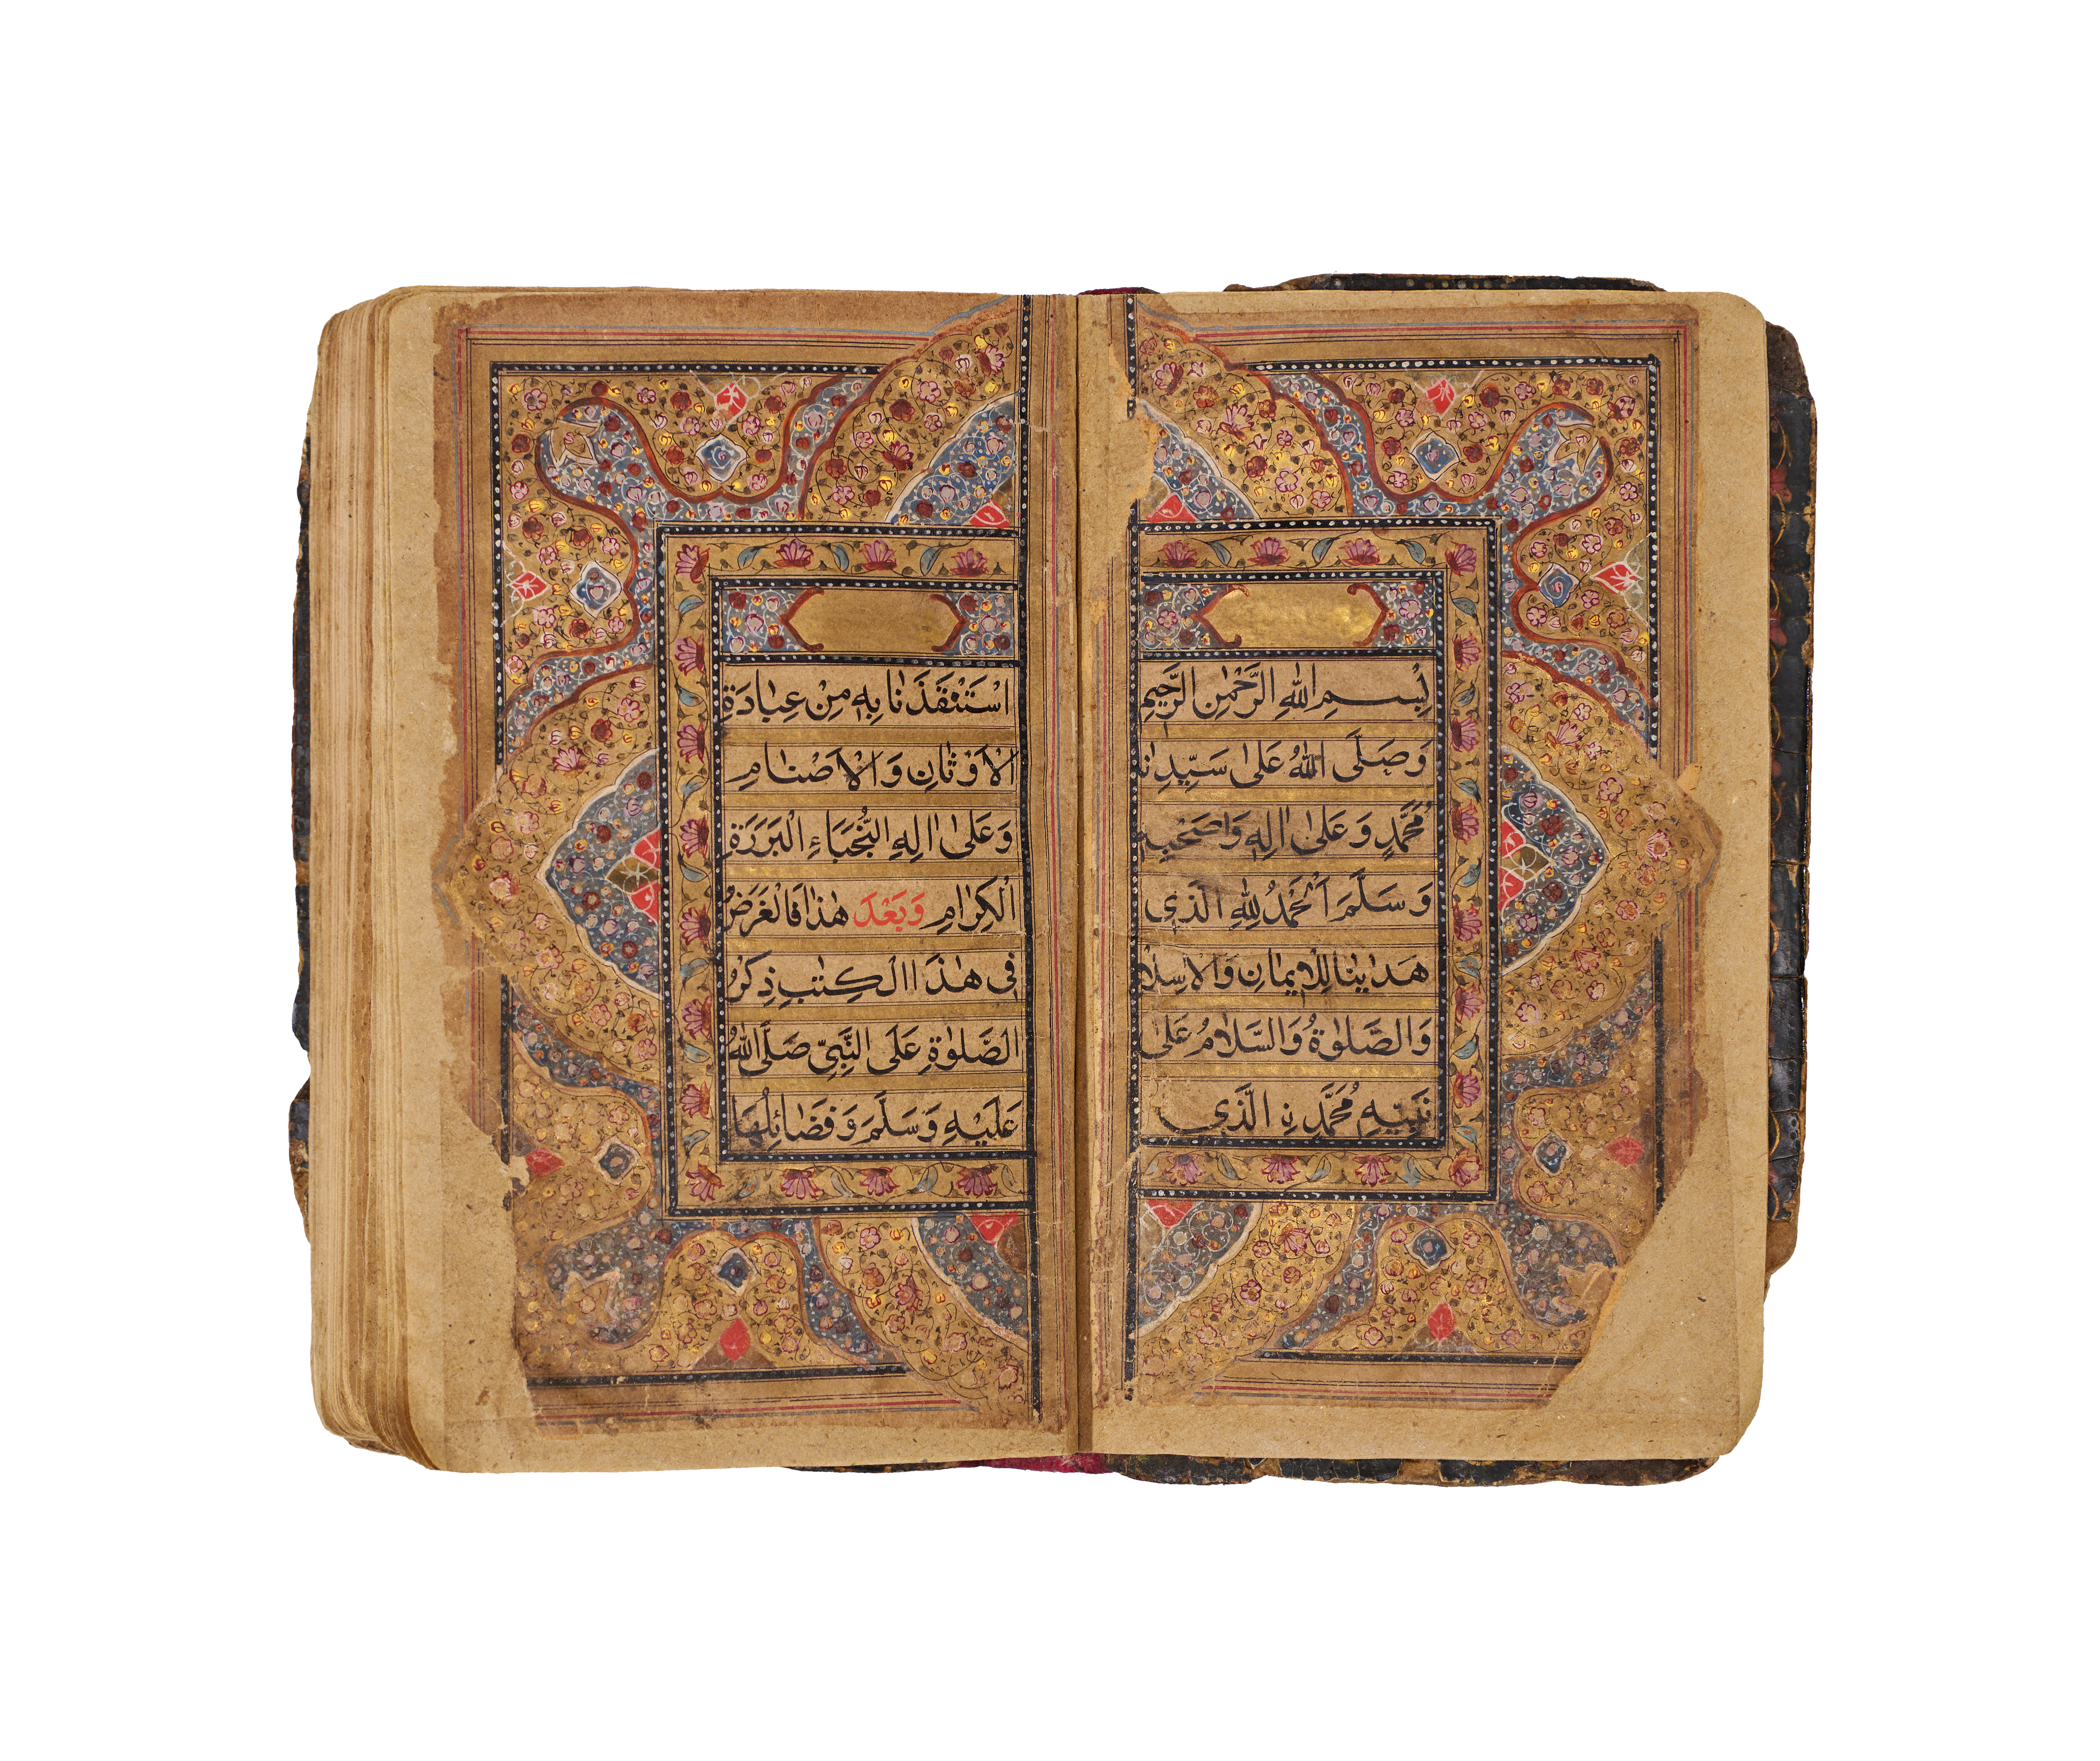 بِسْمِ اللّٰهِ الرَّحْمٰنِ الرَّحِيْمِ
وَصَلَّى اللّٰهُ عَلٰى سَيِّدِنَا
مُحَمَّدٍ وَعَلٰى اٰلِهٖ وَاصَحْبِهٖ
وَسَلَّمَ اَلْحَمْدُ لِلّٰهِ الَّذِي
هَدٰينَا لِلْاِيمَانِ وَالْاِسْلَامِ
وَالصَّلٰوةُ وَالسَّلَامُ عَلٰى
نَبِيِّهٖ مُحَمَّدٍ نِ الَّذِي
اسْتَنْقَذَنَا بِهٖ مِنْ عِبَادَةِ
الْاَوْثَانِ وَالْاَصْنَامِ
وَعَلٰى اٰلِهِ النُّجَبَاءِ الْبَرَرَةِ
الْكِرَامِ وَبَعْدَ هٰذَا فَالْغَرَضُ
فِي هٰذَا الْكِتٰبِ ذِكْرُ
الصَّلٰوةِ عَلَى النَّبِيِّ صَلَّى اللّٰهُ
عَلَيْهِ وَسَلَّمَ وَفَضَائِلُهَا